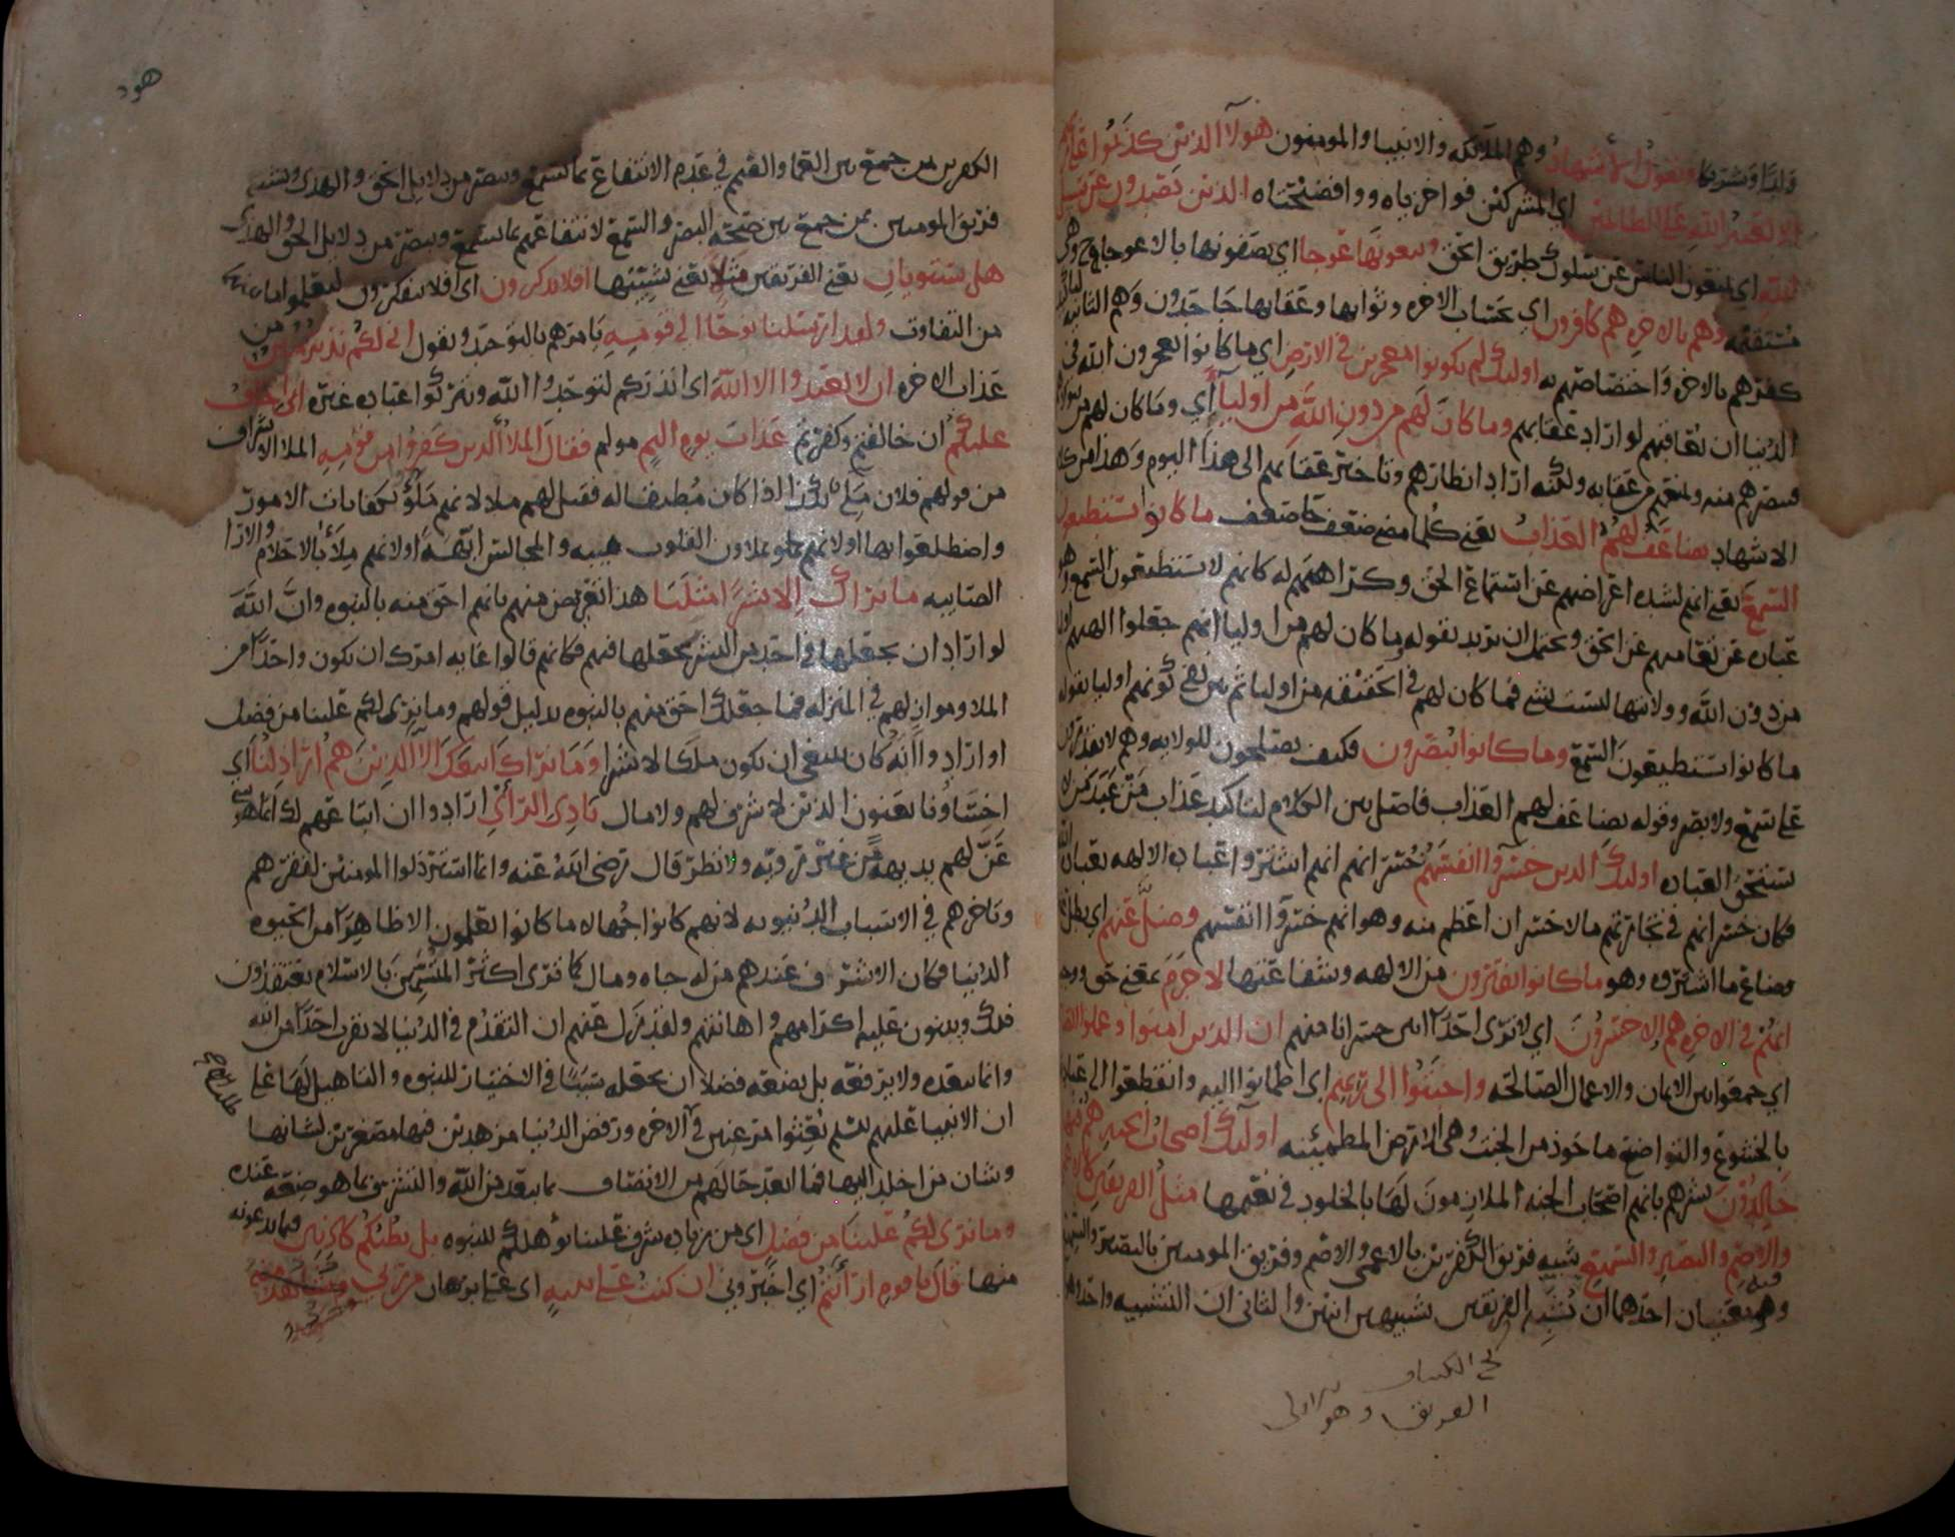 ولدا وشريكا ويقول الأشهاد وهم الملائكه والانبيا والمومنون هولآ الذين كذبوا على ربهم
الا لعنة الله على الظالمين اي المشركين فواخزياه ووافضيحتاه الذين يصدون عن سبيل
الله اي يمنعون الناس عن سلوك طريق الحق ويبغونها عوجا اي يصفونها بالاعوجاج وهي
مستقيمه وهم بالاخره هم كافرون اي بحساب الاخره وثوابها وعقابها جاحدون وهم الثانيه
كفرهم بالاخره واختصاصهم به اولئك لم يكونوا معجزين في الارض اي ما كانوا يعجزون الله في
الدنيا ان يعاقبهم لو اراد عقابهم وما كان لهم من دون الله من اوليآ اي وما كان لهم من
ينصرهم منه ويمنعهم من عقابه ولكنه اراد انظارهم وتاخير عقابهم الى هذا اليوم وهذا من كلام
الاشهاد يضاعف لهم العذاب يعني كلما مضى ضعف جا ضعف ما كانوا يستطيعون
السمع يعني انهم لشده اعراضهم عن استماع الحق وكراهتهم له كانهم لا يستطيعون السمع
عباره عن تعاميهم عن الحق ويحتمل ان يريد بقوله وما كان لهم من اوليا انهم جعلوا الهتهم اوليا
من دون الله وولايتها ليست بشي فما كان لهم في الحقيقه من اوليا ثم بين نفي كونهم اوليا بقوله
ما كانوا يستطيعون السمع وما كانوا يبصرون فكيف يصلحون للولايه وهم لا
على سمع ولا بصر وقوله يضاعف لهم العذاب فاصل بين الكلام لتاكيد عذاب من عبد من لا
يستحق العباده اولئك الذين خسروا انفسهم خسرانهم انهم اشتروا عباده الالهه بعباده الله
فكان خسرانهم في تجارتهم ما لا خسران اعظم منه وهو انهم خسروا انفسهم وضل عنهم اي بطل
وضاع ما اشتروه وهو ما كانوا يفترون من الالهه وشفاعتها لا جرم بمعنى حق
انهم في الاخره هم الاخسرون اي لا ترى احدا ابين خسرانا منهم ان الذين امنوا وعملوا الصالحات
اي جمعوا بين الايمان والاعمال الصالحه واخبتوا الى ربهم اي اطمانوا اليه وانقطعوا الى عبادته
بالخشوع والتواضع ماخوذ من الخبت وهي الارض المطمئنه اولئك اصحاب الجنه هم فيها
خالدون بشرهم بانهم اصحاب الجنه الملازمون لها بالخلود في نعيمها مثل الفريقين كالاعمى
والاصم والبصير والسميع شبه فريق الكافرين بالاعمى والاصم وفريق المومنين بالبصير والسميع
وفيه معنيان احدهما ان يشبه الفريقين تشبيهين اثنين والثاني ان التشبيه واحد
الفريق وهو اولى
هود
الكافرين بمن جمع بين العما والصمم في عدم الانتفاع بما يسمع ويبصر من دلايل الحق والهدى وشبه
فريق المومنين بمن جمع بين صحة البصر والسمع لانتفاعهم بما يسمع ويبصر من دلايل الحق والهدى
هل يستويان يعني الفريقين مثلا يعني تشبيها افلا تذكرون اي افلا تتفكرون لتعلموا ما بينهما
من التفاوت ولقد ارسلنا نوحا الى قومه يامرهم بالتوحيد ويقول اني لكم نذير مبين من
عذاب الاخره ان لا تعبدوا الا الله اي انذركم لتوحدوا الله وتتركوا عباده غيره اني اخاف
عليكم ان خالفتم وكفرتم عذاب يوم اليم مولم فقال الملأ الذين كفروا من قومه الملا الاشراف
من قولهم فلان ملي بكذا اذا كان مطيقا له فقيل لهم ملا لانهم ملؤ بكفايات الامور
واضطلعوا بها او لانهم يملون القلوب هيبه والمجالس ابهة او لانهم ملأ بالاحلام والارا
الصايبه ما نراك الا بشرا مثلنا هذا تعريض منهم بانهم احق منه بالنبوه وان الله
لو اراد ان يجعلها في احد من البشر لجعلها فيهم فكانهم قالوا غايه امرك ان تكون واحدا من
الملا وموازيهم في المنزله فما جعلك احق منهم بالنبوه بدليل قولهم وما نرى لكم علينا من فضل
او ارادوا انه كان ينبغي ان يكون ملكا لا بشرا وما نراك اتبعك الا الذين هم اراذلنا اي
اخساونا يعنون الذين لا شرف لهم ولا مال بادي الرأي ارادوا ان اتباعهم لك انما هو شي
عن لهم بديهة من غير رويه ولا نظر قال رضي الله عنه وانما استرذلوا المومنين لفقرهم
وتاخرهم في الاسباب الدنيويه لانهم كانوا جهالا ما كانوا يعلمون الا ظاهرا من الحيوه
الدنيا فكان الاشرف عندهم من له جاه ومال كما ترى اكثر المتسمين بالاسلام يعتقدون
ذلك ويبنون عليه اكرامهم واهانتهم ولقد زل عنهم ان التقدم في الدنيا لا يقرب احدا من الله
وانما يبعده ولا يرفعه بل يضعه فضلا ان يجعله سببا في الاختيار للنبوه والتاهيل لها على
ان الانبيا عليهم السلم بعثوا مرغبين في الآخره ورفض الدنيا مزهدين فيها مصغرين لشانها
وشان من اخلد اليها فما ابعد حالهم من الاتصاف بما يبعد من الله والتشرف بما هو ضعه عنده
وما نرى لكم علينا من فضل اي من زياده شرف علينا تؤهلكم للنبوه بل نظنكم كاذبين فيما تدعونه
منها قال يا قوم ارأيتم اي اخبروني ان كنت على بينه اي على برهان من ربي